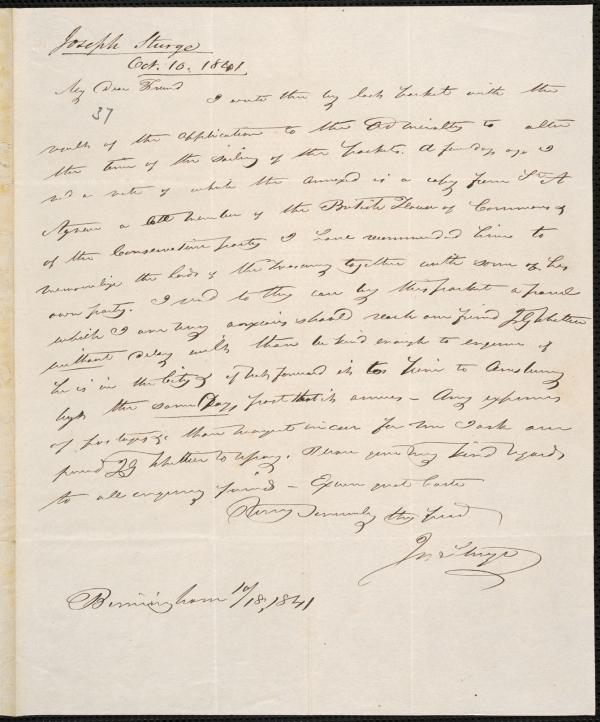 Joseph Sturge
Oct. 10. 1841.
My Dear Friend
37
I wrote thee by last packet with the
result of the application to the Admiralty to alter
the time of the sailing of the packets. A few days ago I
a note of which the annexed is a copy from Sr A
Agnew a member of the British House of Commons &
of the Conservative party I have recommended him to
memorialize the lords of the treasury together with some of his
own party. I send to thy care by this packet a parcel
which I am very anxious should reach our friend J G Whittier
without delay wilt thou be kind enough to enquire if
he is in the city & if not forward it to him to Amesbury
by the same Day's post that it arrives – Any expenses
of postage &c thou mayst incur for me I ask our
friend J G Whittier to repay. Please give my kind regards
to all enquiring friends – Excuse great haste
Very sincerely thy friend
Jos Sturge
Birmingham 10/18, 1841